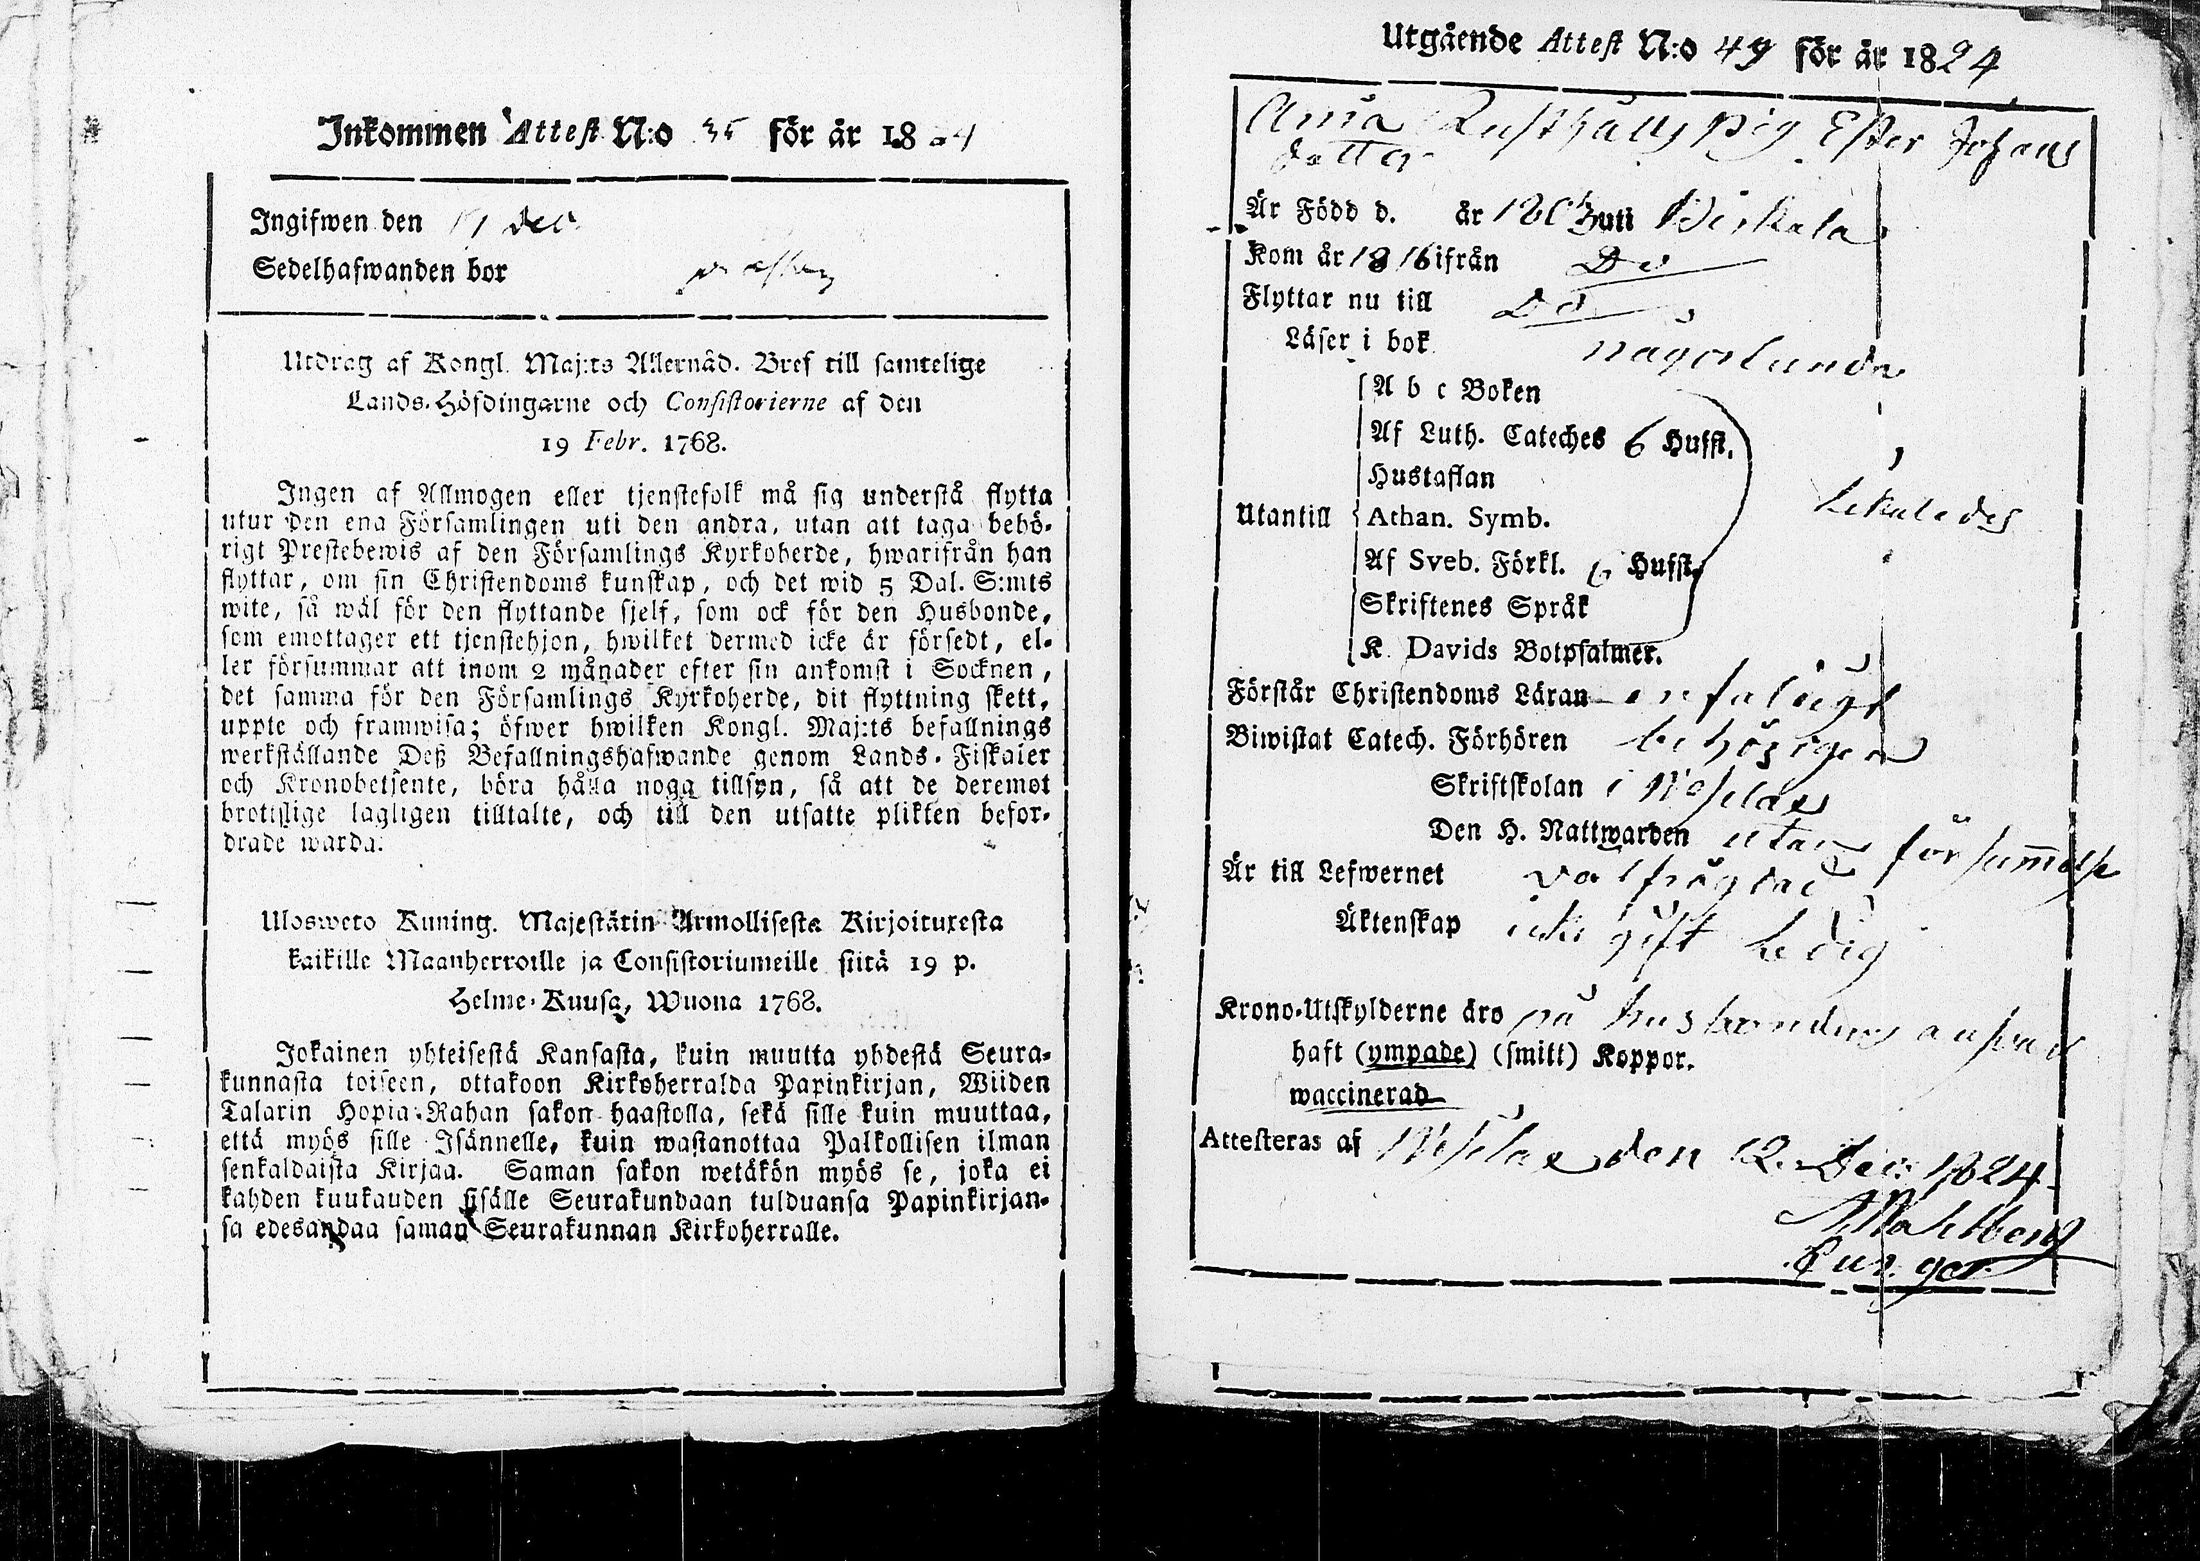 Inkommen Attest N:o 35 för år 1824
Ingifwen den 17 Dec.
Sedelhafwanden bor
Utdrag af Kongl. Maj:ts Allernåd. Bref till samtelige
Lands-Höfdingarne och Consistorierne af den
19 Febr. 1768.
Ingen af Allmogen eller tjenstefolk må sig understå flytta
utur den ena Församlingen uti den andra, utan att taga behö-
rigt Prestebewis af den Församlings Kyrkoherde, hwarifrån han
flyttar, om sin Christendoms kunskap, och det wid 5 Dal. S:mts
wite, så wäl för den flyttande sjelf, som ock för den Husbonde,
som emottager ett tjenstehjon, hwilket dermed icke är försedt, el-
ler försummar att inom 2 månader efter sin ankomst i Socknen,
det samma för den Församlings Kyrkoherde, dit flyttning skett,
uppte och framwisa; öfwer hwilken Kongl. Maj:ts befallnings
werkställande Deß Befallningshafwande genom Lands-Fiskaler
och Kronobetjente, böra hålla noga tillsyn, så att de deremot
brottslige lagligen tilltalte, och till den utsatte plikten befor-
drade warda.
Ulosweto Kuning. Majestätin Armollisesta Kirjoituxesta
kaikille Maanherroille ja Consistoriumeille siitä 19 p.
Helme-Kuusa, Wuona 1768.
Jokainen yhteisestä Kansasta, kuin muutta yhdestä Seura-
kunnasta toiseen, ottakoon Kirkoherralda Papinkirjan, Wiiden
Talarin Hopia-Rahan sakon haastolla, sekä sille kuin muuttaa,
että myös sille Isännelle, kuin wastanottaa Palkollisen ilman
senkaldaista Kirjaa. Saman sakon wetäkön myös se, joka ei
kahden kuukauden sisälle Seurakundaan tulduansa Papinkirjan-
sa edesandaa saman Seurakunnan Kirkoherralle.
Utgående Attest N:o 49 för år 1824
Rusthålls pig Ester Johans
dotter
Är Född d. år 180 uti Birkala
Kom år 1816 ifrån Do
Flyttar nu till Do
Läser i bok någorlunda
A b c Boken
Af Luth. Cateches 6 Hufst.
Hustaflan
Utantill Athan. Symb. likaledes
Af Sveb. Förkl. 6 Hufst.
Skriftenes Språk
K. Davids Botpsalmer.
Förstår Christendoms Läran enfaldigt
Biwistat Catech. Förhören behörigen
Skriftskolan i Wesilax
Den H. Nattwarden utan försummelse
Är till Lefwernet välfrägdad
Äktenskap icke gift Ledig
Krono-Utskylderne äro på husbondens answar
haft (ympade) (smitt) Koppor.
waccinerad
Attesteras af Wesilax den 12 Dec: 1824
Wahlberg